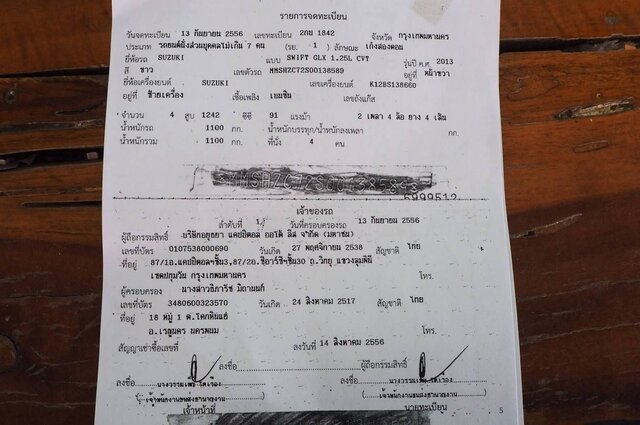 รายการจดทะเบียน
วันจดทะเบียน 13 กันยายน 2556 เลขทะเบียน 2กย 1842 จังหวัด กรุงเทพมหานคร
ประเภท รถยนต์นั่งส่วนบุคคลไม่เกิน 7 คน (รย. 1) ลักษณะ เก๋งสองตอน
ยี่ห้อรถ SUZUKI แบบ SWIFT GLX 1.25L CVT รุ่นปี ค.ศ. 2013
สี ขาว เลขตัวรถ MMSHZC72S00138589 อยู่ที่ หน้าขวา
ยี่ห้อเครื่องยนต์ SUZUKI เลขเครื่องยนต์ K12BS138660
อยู่ที่ ซ้ายเครื่อง เชื้อเพลิง เบนซิน เลขถังแก๊ส
จำนวน 4 สูบ 1242 ซีซี 91 แรงม้า 2 เพลา 4 ล้อ ยาง 4 เส้น
น้ำหนักรถ 1100 กก. น้ำหนักบรรทุก/น้ำหนักลงเพลา กก.
น้ำหนักรวม 1100 กก. ที่นั่ง 4 คน
5999512
เจ้าของรถ
ลำดับที่ 1 วันที่ครอบครองรถ 13 กันยายน 2556
ผู้ถือกรรมสิทธิ์ บริษัทอยุธยา แคปปิตอล ออโต้ ลีส จำกัด (มหาชน)
เลขที่บัตร 0107538000690 วันเกิด 27 พฤศจิกายน 2538 สัญชาติ ไทย
ที่อยู่ ถ.วิทยุ แขวงลุมพินี
เขตปทุมวัน กรุงเทพมหานคร โทร.
ผู้ครอบครอง
เลขที่บัตร 3480600323570 วันเกิด 24 สิงหาคม 2517 สัญชาติ ไทย
ที่อยู่ 18 หมู่ 1
อ.เรณูนคร นครพนม โทร.
สัญญาเช่าซื้อเลขที่ ลงวันที่ 14 สิงหาคม 2556
ลงชื่อ ผู้ถือกรรมสิทธิ์
ลงชื่อ ลงชื่อ
เจ้าหน้าที่ นายทะเบียน
5